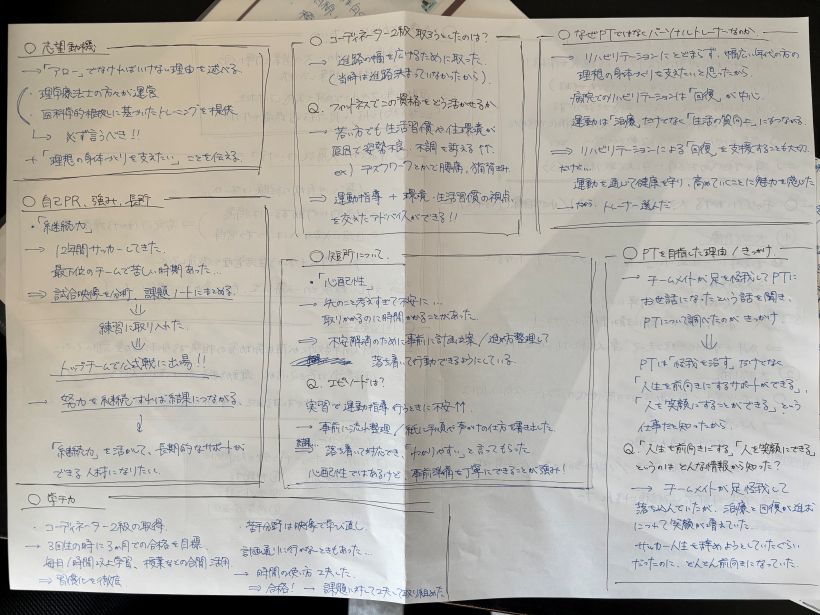 ○ 志望動機
→「アロー」でなければいけない理由を述べる.
・理学療法士の方々が運営
・医科学的根拠に基づいたトレーニングを提供
↳ 必ず言うべき!!
+「理想の身体づくりを支えたい」ことを伝える.
○ 自己PR、強み、長所
・「継続力」
→ 12年間サッカーしてきた.
最下位のチームで苦しい時期あった…
⇒ 試合映像を分析、課題ノートにまとめる.
⇓
練習に取り入れた.
⇓
トップチームで公式戦に出場!!
→ 努力を継続すれば結果につながる.
↓
「継続力」を活かして、長期的なサポートが
できる人材になりたい.
○ 学チカ
・コーディネーター2級の取得
→ 3回生の時に3ヶ月での合格を目標
毎日1時間以上学習、授業などの合間活用
⇒ 習慣化を徹底
・苦手分野は映像で学び直し
計画通りに行かなときもあった…
→ 時間の使い方工夫した.
⇒ 合格! → 課題に対して工夫して取り組めた.
○ コーディネーター2級 取ろうとしたのは?
→ 進路の幅を広げるために取った.
(当時は進路決まっていなかったから)
Q. フィットネスでこの資格をどう活かせるか
→ 若い方でも生活習慣や住環境が
原因で姿勢不良、不調を訴える↑↑.
ex) デスクワークとかで腰痛、猫背
⇒ 運動指導 + 環境・生活習慣の視点
を交えたアドバイスができる!!
○ 短所について.
・「心配性」
→ 先のこと考えすぎて不安に…
取りかかるのに時間かかることがあった.
→ 不安解消のために事前に計画立案/進め方整理して
落ち着いて行動できるようにしている.
Q. エピソードは?
実習で運動指導行うときに不安↑↑
→ 事前に流れ整理/紙に手順や声かけの仕方書き出した.
落ち着いて対応でき、「わかりやすい」と言ってもらった
心配性ではあるけど、事前準備を丁寧にできることが強み!
○ なぜPTではなくパーソナルトレーナーなのか.
→ リハビリテーションにとどまらず、幅広い年代の方の
理想の身体づくりを支えたいと思ったから.
病院でのリハビリテーションは「回復」が中心.
運動は「治療」だけでなく「生活の質向上」につながる.
⇒ リハビリテーションによる「回復」を支援することも大切.
だけど…
運動を通じて健康を守り、高めていくことに魅力を感じた
だから、トレーナー選んだ.
○ PTを目指した理由/きっかけ
→ チームメイトが足を怪我してPTに
お世話になったという話を聞き、
PTについて調べたのがきっかけ
⇓
PTは「怪我を治す」だけでなく
「人生を前向きにするサポートができる」、
「人を笑顔にすることができる」という
仕事だと知ったから.
Q.「人生を前向きにする」「人を笑顔にできる」
というのはどんな情報から知った?
→ チームメイトが足怪我して
落ち込んでいたが、治療と回復が進む
につれて笑顔が増えていた.
サッカー人生を辞めようとしていたぐらい
だったのに、どんどん前向きになっていた.